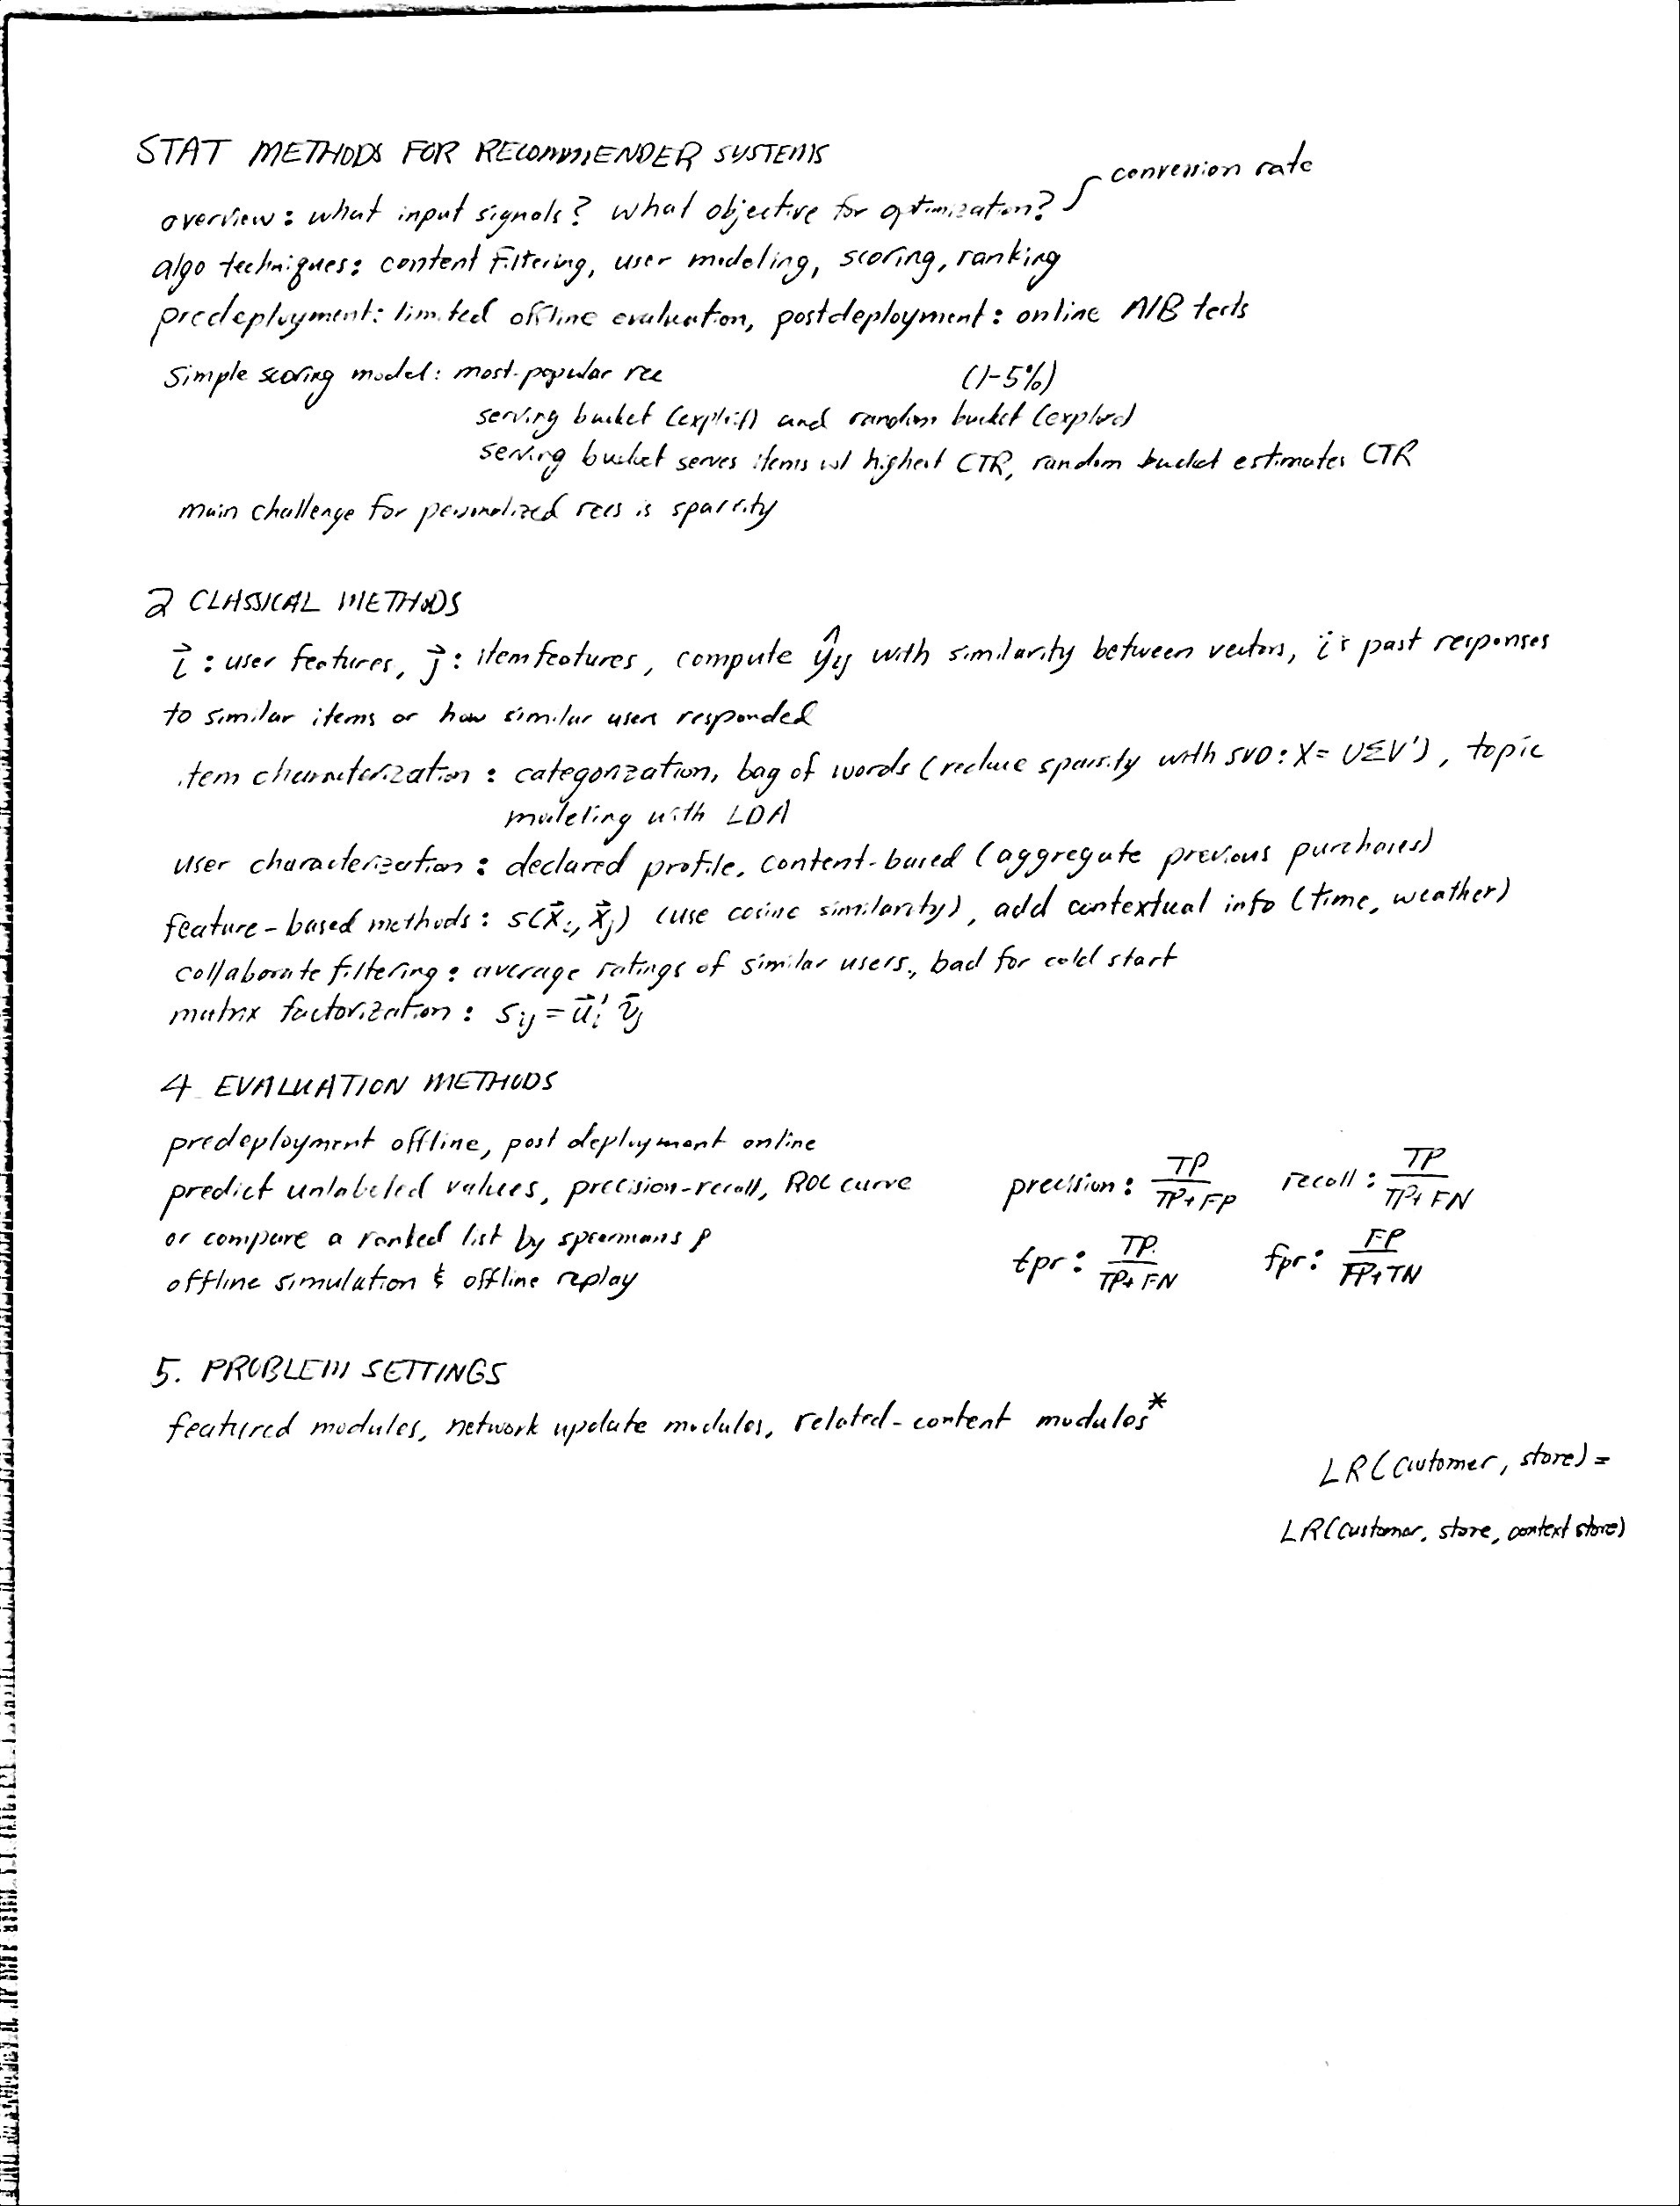 STAT METHODS FOR RECOMMENDER SYSTEMS
conversion rate
overview: what input signals? what objective for optimization?
algo techniques: content filtering, user modeling, scoring, ranking
predeployment: limited offline evaluation, postdeployment: online A/B tests
simple scoring model: most-popular rec
(1-5%)
serving bucket (exploit) and random bucket (explore)
serving bucket serves items w/ highest CTR, random bucket estimates CTR
main challenge for personalized recs is sparsity
2 CLASSICAL METHODS
i⃗ : user features, j⃗ : item features, compute ŷij with similarity between vectors, i's past responses
to similar items or how similar users responded
item characterization: categorization, bag of words (reduce sparsity with SVD: X = UΣV'), topic
modeling with LDA
user characterization: declared profile, content-based (aggregate previous purchases)
feature-based methods: s(x⃗i, x⃗j) (use cosine similarity), add contextual info (time, weather)
collaborate filtering: average ratings of similar users, bad for cold start
matrix factorization: sij = u⃗i' v⃗j
4 EVALUATION METHODS
predeployment offline, post deployment online
predict unlabeled values, precision-recall, ROC curve
precision: TP/(TP+FP) recall: TP/(TP+FN)
or compare a ranked list by spearmans ρ
tpr: TP/(TP+FN) fpr: FP/(FP+TN)
offline simulation & offline replay
5. PROBLEM SETTINGS
featured modules, network update modules, related-content modules*
LR(customer, store) =
LR(customer, store, context store)